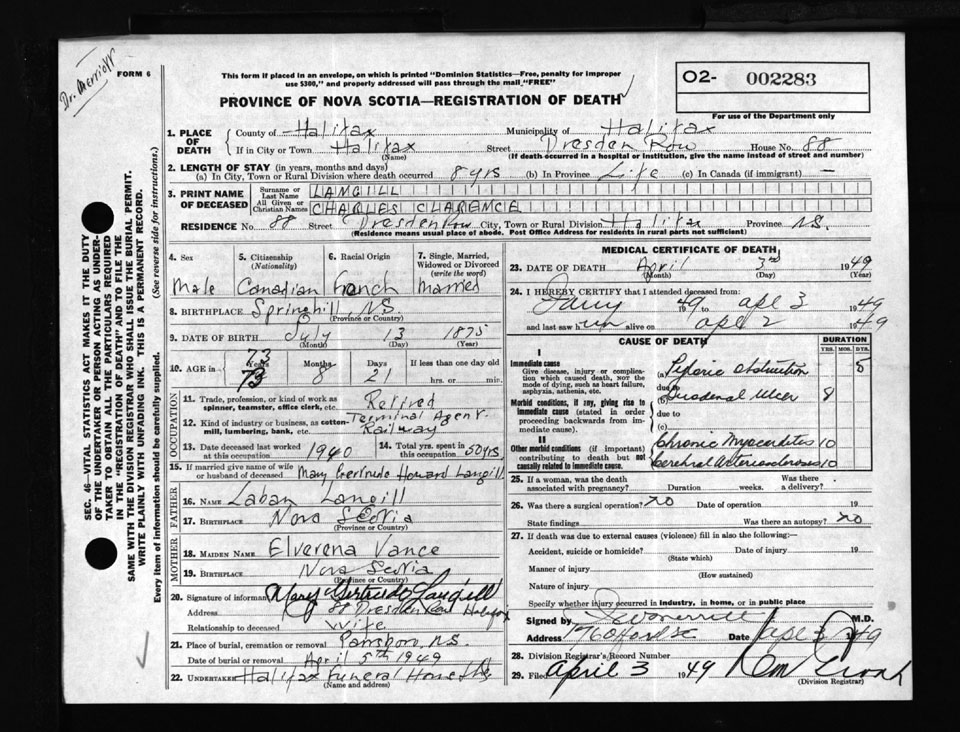 Dr. Merriott
FORM 6
This form if placed in an envelope, on which is printed "Dominion Statistics—Free, penalty for improper
use $300," and properly addressed will pass through the mail "FREE"
O2- 002283
For use of the Department only
PROVINCE OF NOVA SCOTIA—REGISTRATION OF DEATH
SEC. 46—VITAL STATISTICS ACT MAKES IT THE DUTY
OF THE UNDERTAKER OR PERSON ACTING AS UNDER-
TAKER TO OBTAIN ALL THE PARTICULARS REQUIRED
IN THE "REGISTRATION OF DEATH" AND TO FILE THE
SAME WITH THE DIVISION REGISTRAR WHO SHALL ISSUE THE BURIAL PERMIT.
WRITE PLAINLY WITH UNFADING INK. THIS IS A PERMANENT RECORD.
Every item of information should be carefully supplied. (See reverse side for instructions.)
1. PLACE OF DEATH
County of Halifax Municipality of Halifax
If in City or Town Halifax Street Dresden Row House No. 88
(Name) (If death occurred in a hospital or institution, give the name instead of street and number)
2. LENGTH OF STAY (in years, months and days)
(a) In City, Town or Rural Division where death occurred 8 yrs (b) In Province Life (c) In Canada (if immigrant) —
3. PRINT NAME OF DECEASED
Surname or Last Name LANGILL
All Given or Christian Names CHARLES CLARENCE
RESIDENCE No. 88 Street Dresden Row City, Town or Rural Division Halifax Province N.S.
(Residence means usual place of abode. Post Office Address for residents in rural parts not sufficient)
4. Sex 5. Citizenship (Nationality) 6. Racial Origin 7. Single, Married, Widowed or Divorced (write the word)
Male Canadian French Married
8. BIRTHPLACE Springhill N.S.
(Province or Country)
9. DATE OF BIRTH July 13 1875
(Month) (Day) (Year)
10. AGE in Years Months Days If less than one day old
73 8 21 hrs. or min.
73
OCCUPATION
11. Trade, profession, or kind of work as spinner, teamster, office clerk, etc. Retired
12. Kind of industry or business, as cotton-mill, lumbering, bank, etc. Terminal Agent. Railway
13. Date deceased last worked at this occupation 1940 14. Total yrs. spent in this occupation 50 yrs
15. If married give name of wife or husband of deceased Mary Gertrude Howard Langill
FATHER
16. NAME Laban Langill
17. BIRTHPLACE Nova Scotia
(Province or Country)
MOTHER
18. MAIDEN NAME Elverena Vance
19. BIRTHPLACE Nova Scotia
(Province or Country)
20. Signature of informant Mary Gertrude Langill
Address 88 Dresden Row Halifax
Relationship to deceased Wife
21. Place of burial, cremation or removal Parrsboro, N.S.
Date of burial or removal April 5th 1949
22. UNDERTAKER Halifax Funeral Home
(Name and address)
MEDICAL CERTIFICATE OF DEATH
23. DATE OF DEATH April 3rd 1949
(Month) (Day) (Year)
24. I HEREBY CERTIFY that I attended deceased from:
49 to apl 3 1949
and last saw him alive on apl 2 1949
CAUSE OF DEATH DURATION
YRS. MOS. DYS.
I
Immediate cause
Give disease, injury or complication which caused death, not the mode of dying, such as heart failure, asphyxia, asthenia, etc.
(a) Pyloric obstruction 5
due to
Morbid conditions, if any, giving rise to immediate cause (stated in order proceeding backwards from immediate cause).
(b) Duodenal Ulcer 8
due to
(c)
II
Other morbid conditions (if important) contributing to death but not causally related to immediate cause.
Chronic Myocarditis 10
Cerebral Arteriosclerosis 10
25. If a woman, was the death associated with pregnancy? Duration weeks. Was there a delivery?
26. Was there a surgical operation? No Date of operation 19
State findings Was there an autopsy? No
27. If death was due to external causes (violence) fill in also the following:—
Accident, suicide or homicide? Date of injury 19
(State which)
Manner of injury
(How sustained)
Nature of injury
Specify whether injury occurred in industry, in home, or in public place
Signed by M.D.
Address Date apl 3 49
28. Division Registrar's Record Number
29. Filed April 3 1949
(Division Registrar)